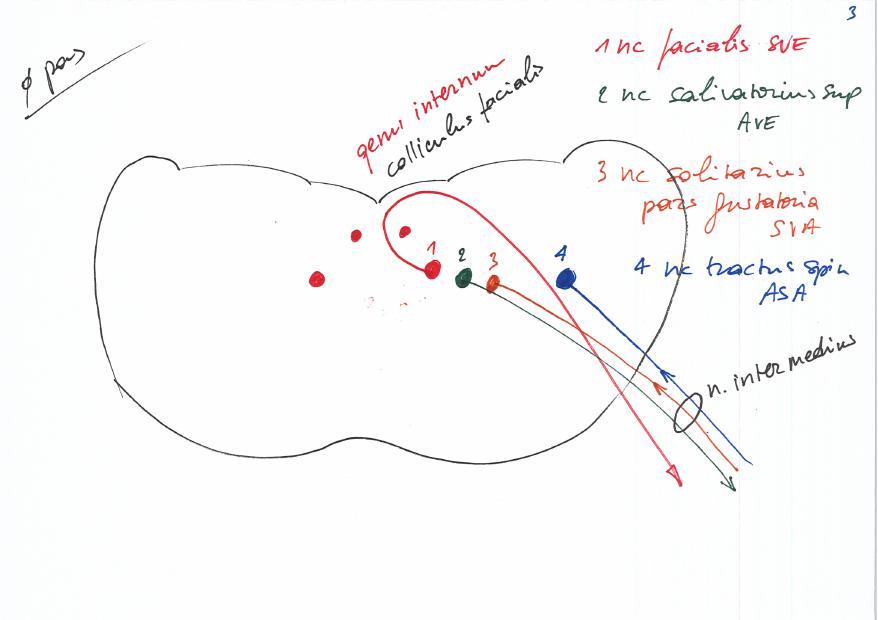 3
φ pons
genu internum
colliculus facialis
1 nc facialis SVE
2 nc salivatorius sup
AVE
3 nc solitarius
pars gustatoria
SVA
4 nc tractus spin
ASA
1
2
3
4
n. intermedius